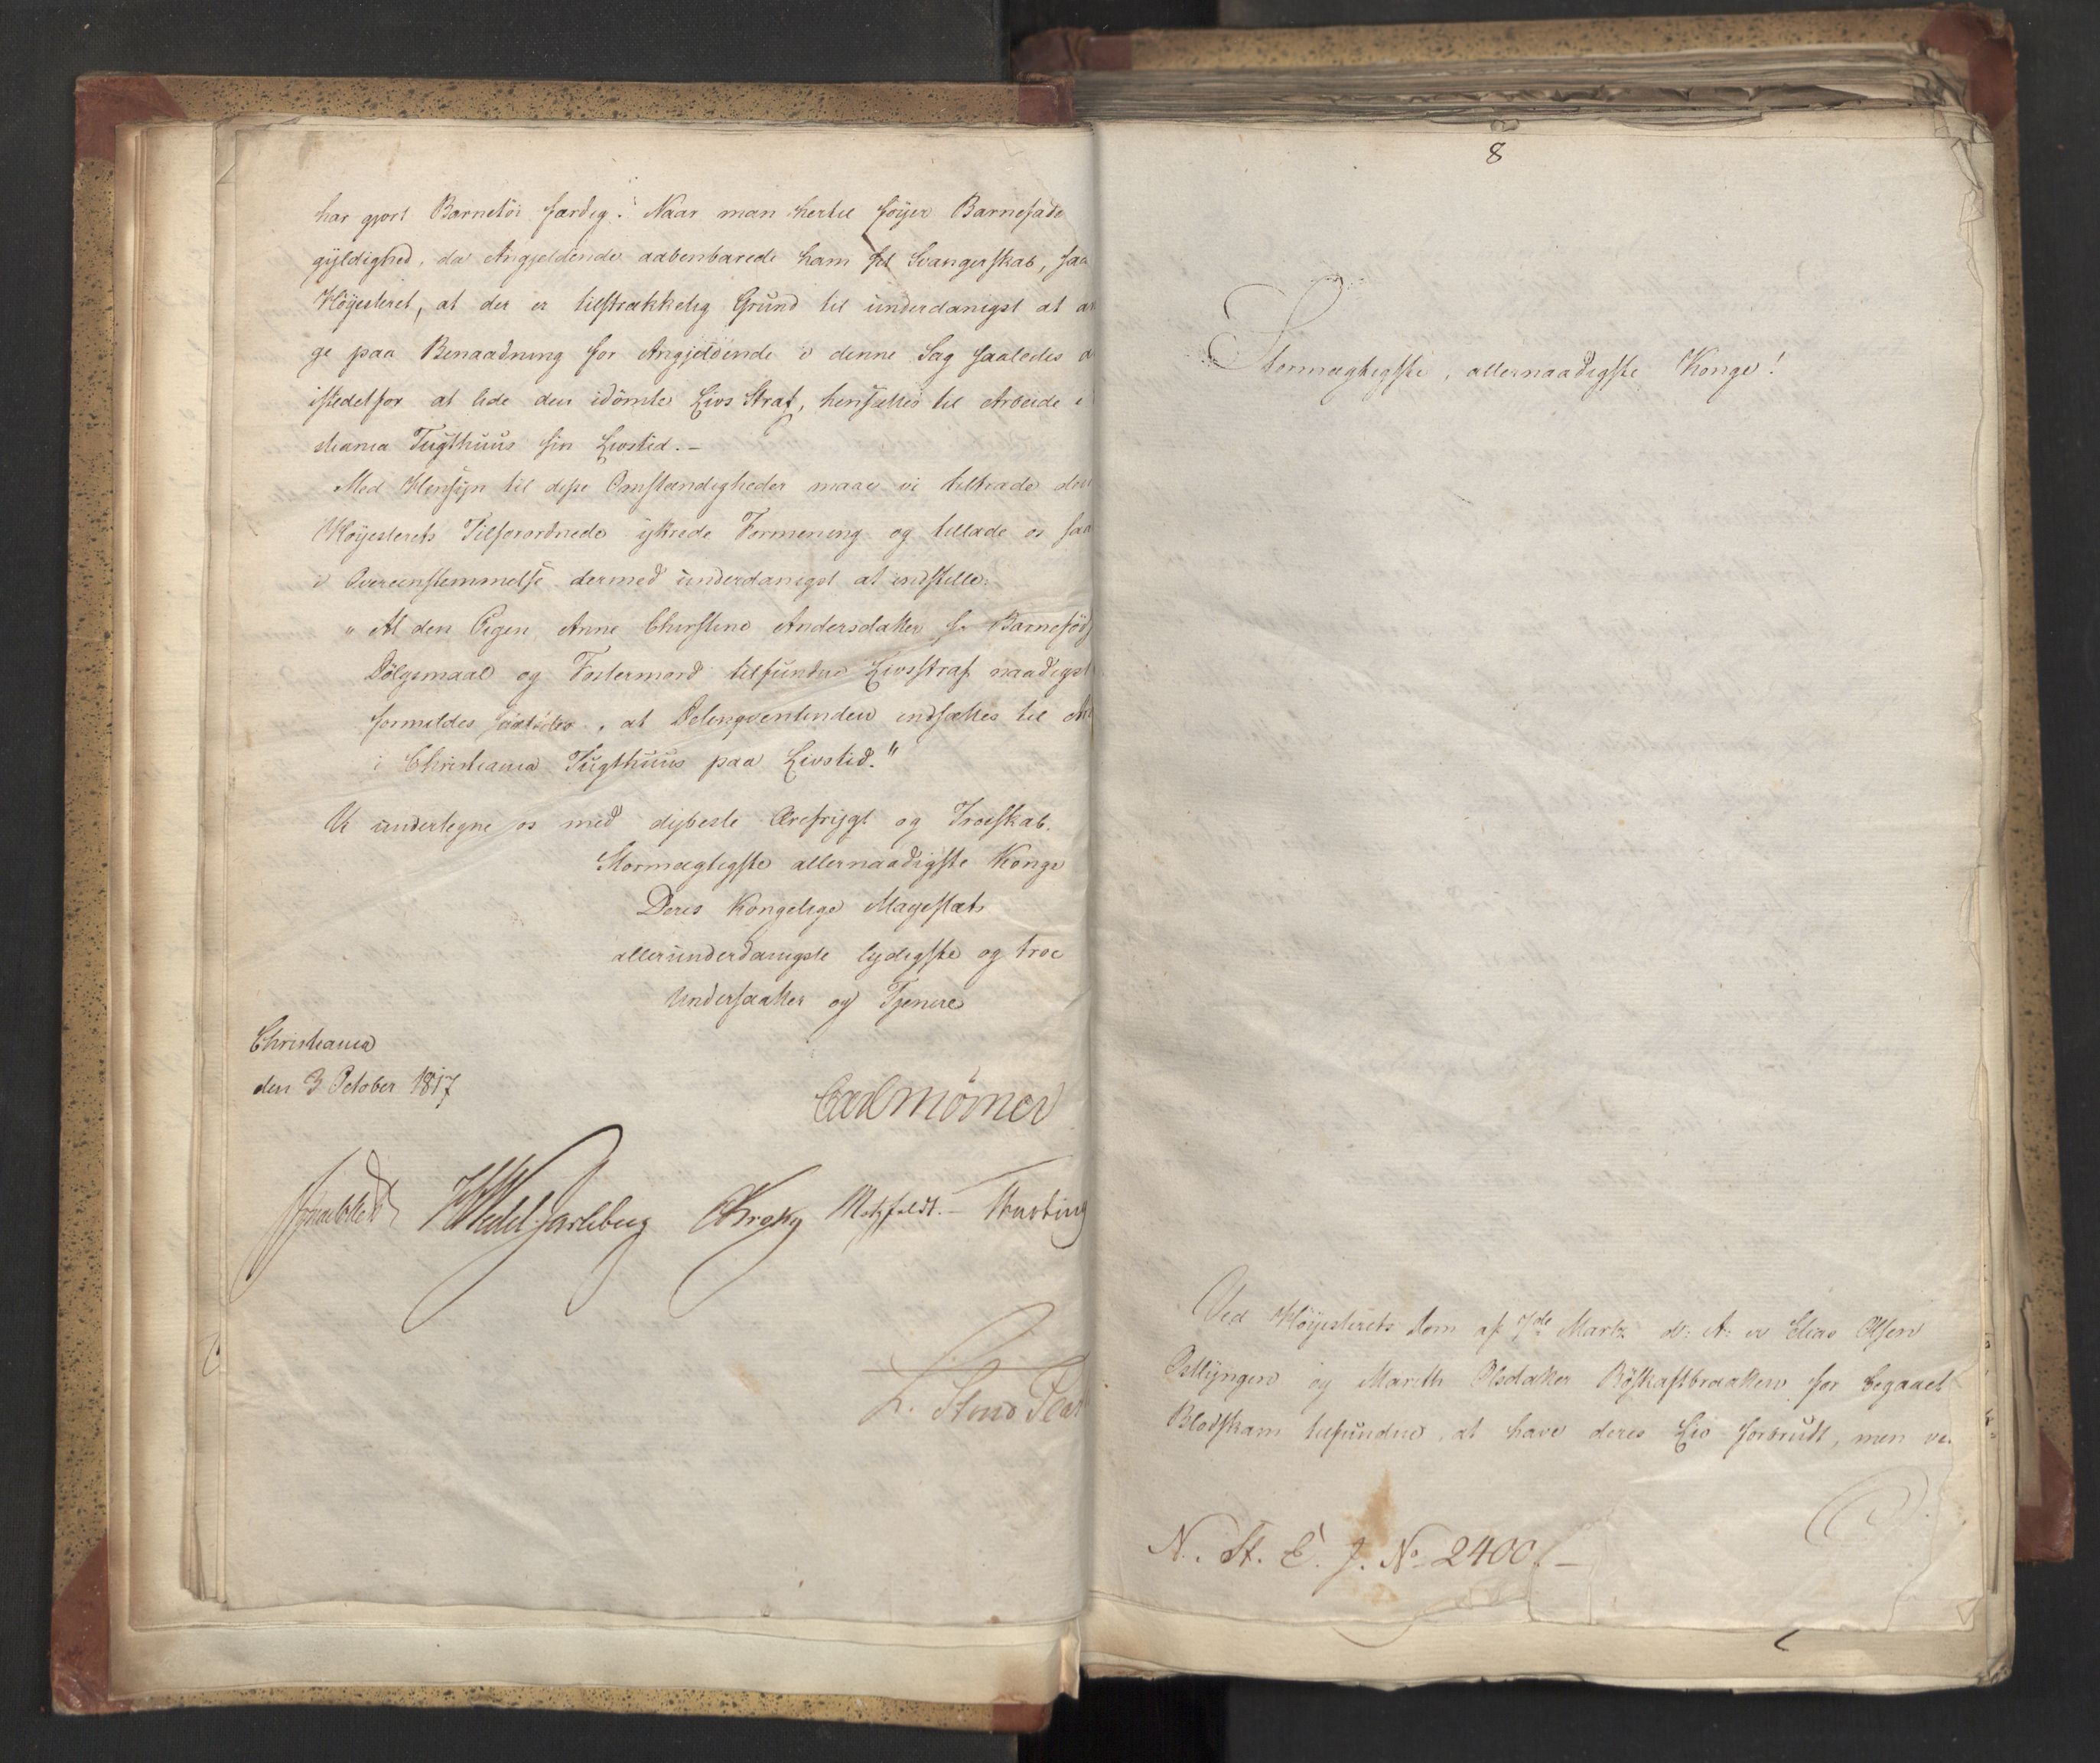 har gjort Barnetöi færdig. Naar man hertil föyer Barnefade
gyldighed, da Angjeldende aabenbarede ham sit Svangerskab, saa
Höyesteret, at der er tilstrækkelig Grund til underdanigst at an
ge paa Benaadning for Angjeldende i denne Sag saaledes a
istedetfor at lide den idömte Livs Straf, hensættes til Arbeide i
stiania Tugthuus sin Livstid.-
Med Hensyn til disse Omstændigheder maae vi tiltræde den
Höyesterets Tilforordnede yttrede Formening og tillade os saa
i Overeensstemmelse dermed underdanigst at indstille:
" At den Pigen Anne Chirstine Andersdatter for Barneföds
Dölgsmaal og Fostermord tilfundne Livsstraf naadigst
formildes saaledes, at Delinqventinden indsættes til Arb
i Christiania Tugthuus paa Livstid."
Vi undertegne os med dybeste Ærefrygt og Troeskab.
Stormægtigste allernaadigste Konge
Deres Kongelige Majestæts
allerunderdanigste lydigste og troe
Undersaatter og Tjenere
Christiania
den 3 October 1817
Carl Mörner
HWedel Jarlsberg Krogh Motzfeldt.-
L. Stoud Plat
8
Stormægtigste, allernaadigste Konge!
Ved Höyesterets Dom af 7de Marts d: A: er Elias Olsen
Östlyngen og Marith Olsdatter Röskaftbraatten for begaaet
Blodskam tilfundne at have deres Liv forbrudt, men ve
N. St. E. J. No 2400.-